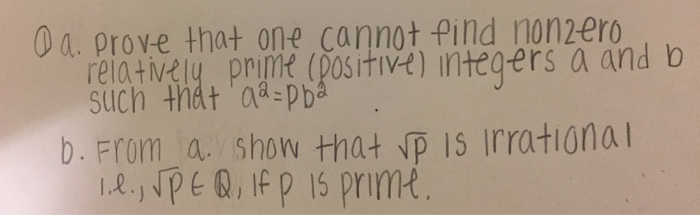 ① a. prove that one cannot find nonzero
relatively prime (positive) integers a and b
such that a²=pb²
b. From a. show that √p is irrational
i.e., √p ∈ Q, if p is prime.